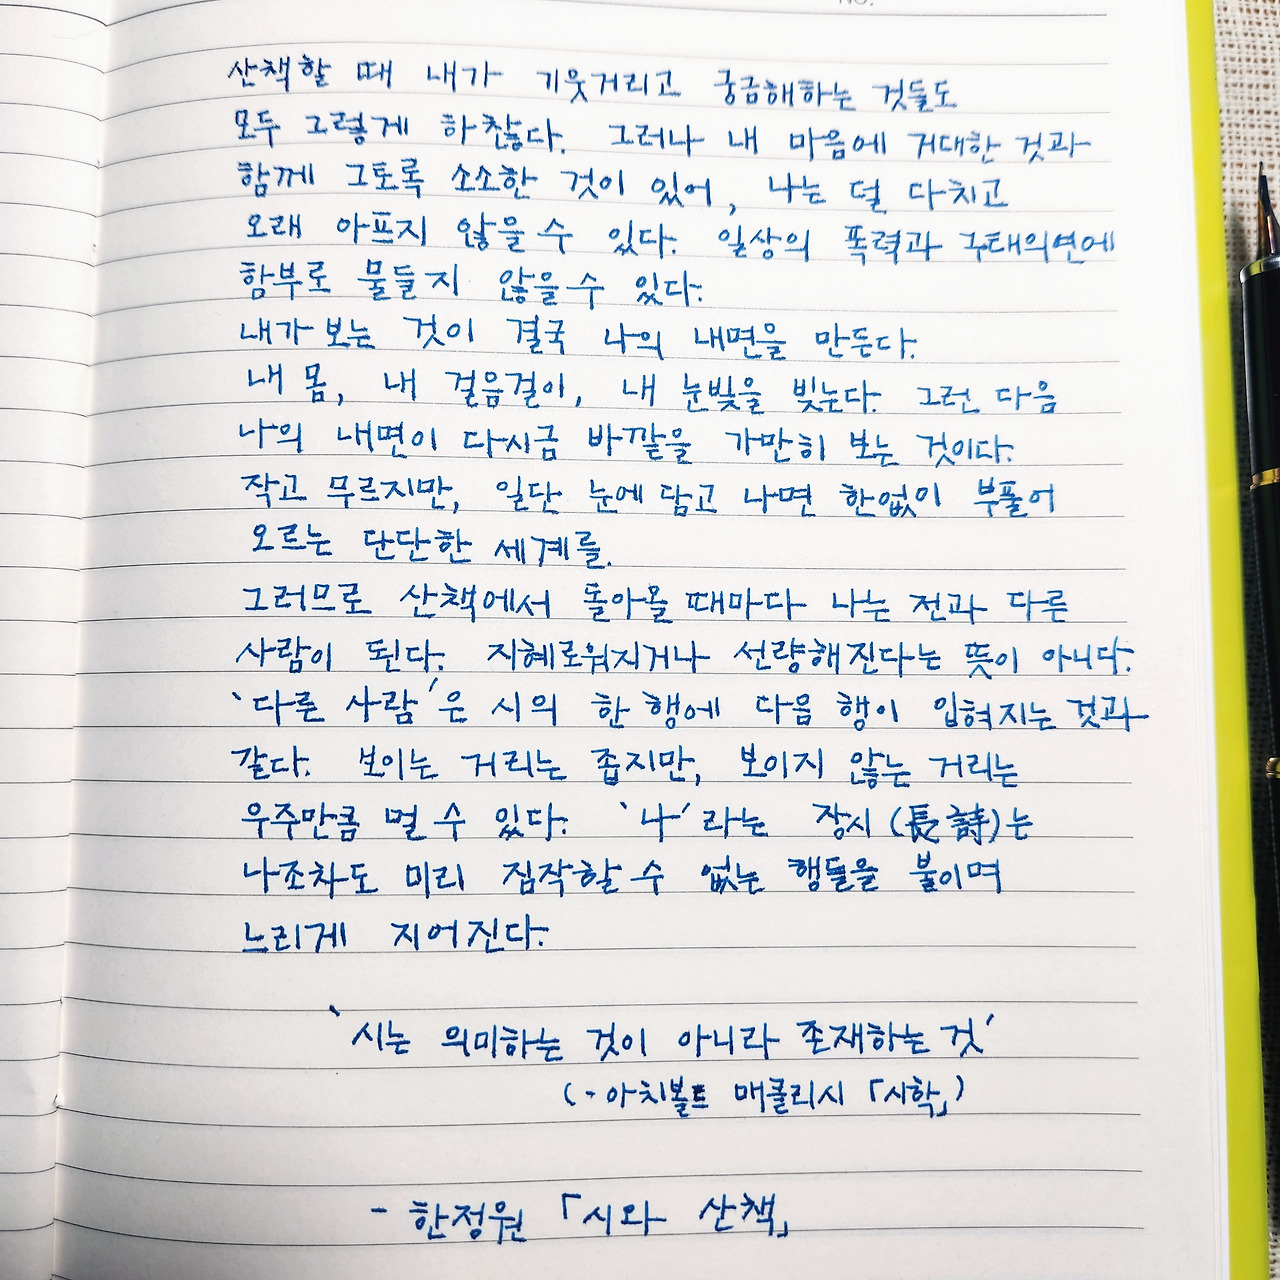 No.
산책할 때 내가 기웃거리고 궁금해하는 것들도
모두 그렇게 하찮다. 그러나 내 마음에 거대한 것과
함께 그토록 소소한 것이 있어, 나는 덜 다치고
오래 아프지 않을 수 있다. 일상의 폭력과 구태의연에
함부로 물들지 않을 수 있다.
내가 보는 것이 결국 나의 내면을 만든다.
내 몸, 내 걸음걸이, 내 눈빛을 빚는다. 그런 다음
나의 내면이 다시금 바깥을 가만히 보는 것이다.
작고 무르지만, 일단 눈에 담고 나면 한없이 부풀어
오르는 단단한 세계를.
그러므로 산책에서 돌아올 때마다 나는 전과 다른
사람이 된다. 지혜로워지거나 선량해진다는 뜻이 아니다.
'다른 사람'은 시의 한 행에 다음 행이 입혀지는 것과
같다. 보이는 거리는 좁지만, 보이지 않는 거리는
우주만큼 멀 수 있다. '나'라는 장시(長詩)는
나조차도 미리 짐작할 수 없는 행들을 붙이며
느리게 지어진다.
'시는 의미하는 것이 아니라 존재하는 것'
(-아치볼드 매클리시 「시학」)
- 한정원 「시와 산책」